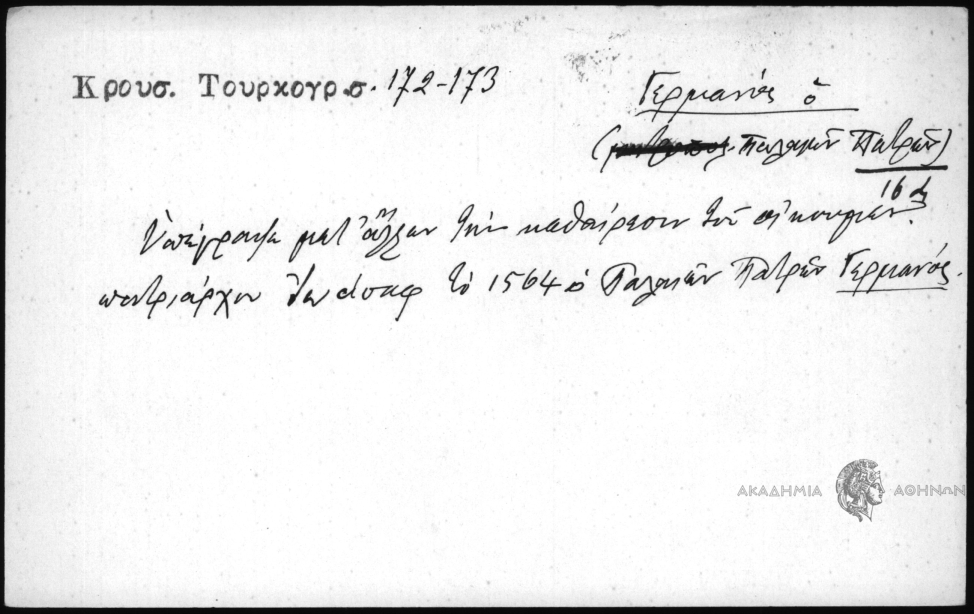 Κρουσ. Τουρκογρ. σ. 172-173
Γερμανός ὁ
Παλαιῶν Πατρῶν)
16
Ὑπέγραψε μετ' ἄλλων τὴν καθαίρεσιν τοῦ οἰκουμεν.
πατριάρχου Ἰωάσαφ τὸ 1564 ὁ Παλαιῶν Πατρῶν Γερμανός.
ΑΚΑΔΗΜΙΑ ΑΘΗΝΩΝ